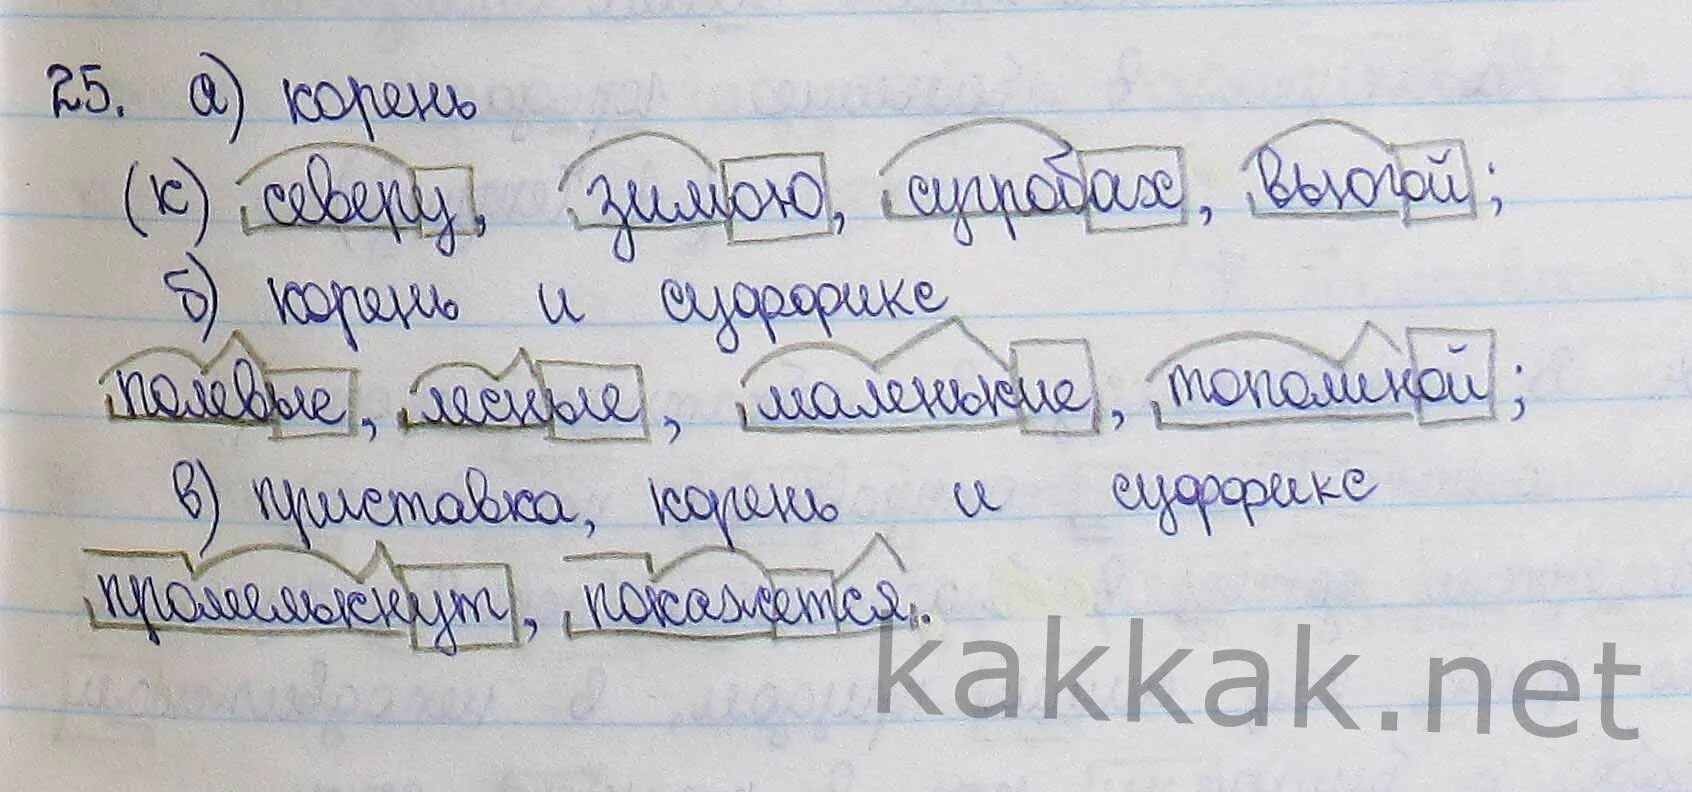 25. а) корень
(к) северу, зимою, сугробах, вьюгой;
б) корень и суффикс
полевые, лесные, маленькие, тополиной;
в) приставка, корень и суффикс
промелькнут, покажется.
kakkak.net